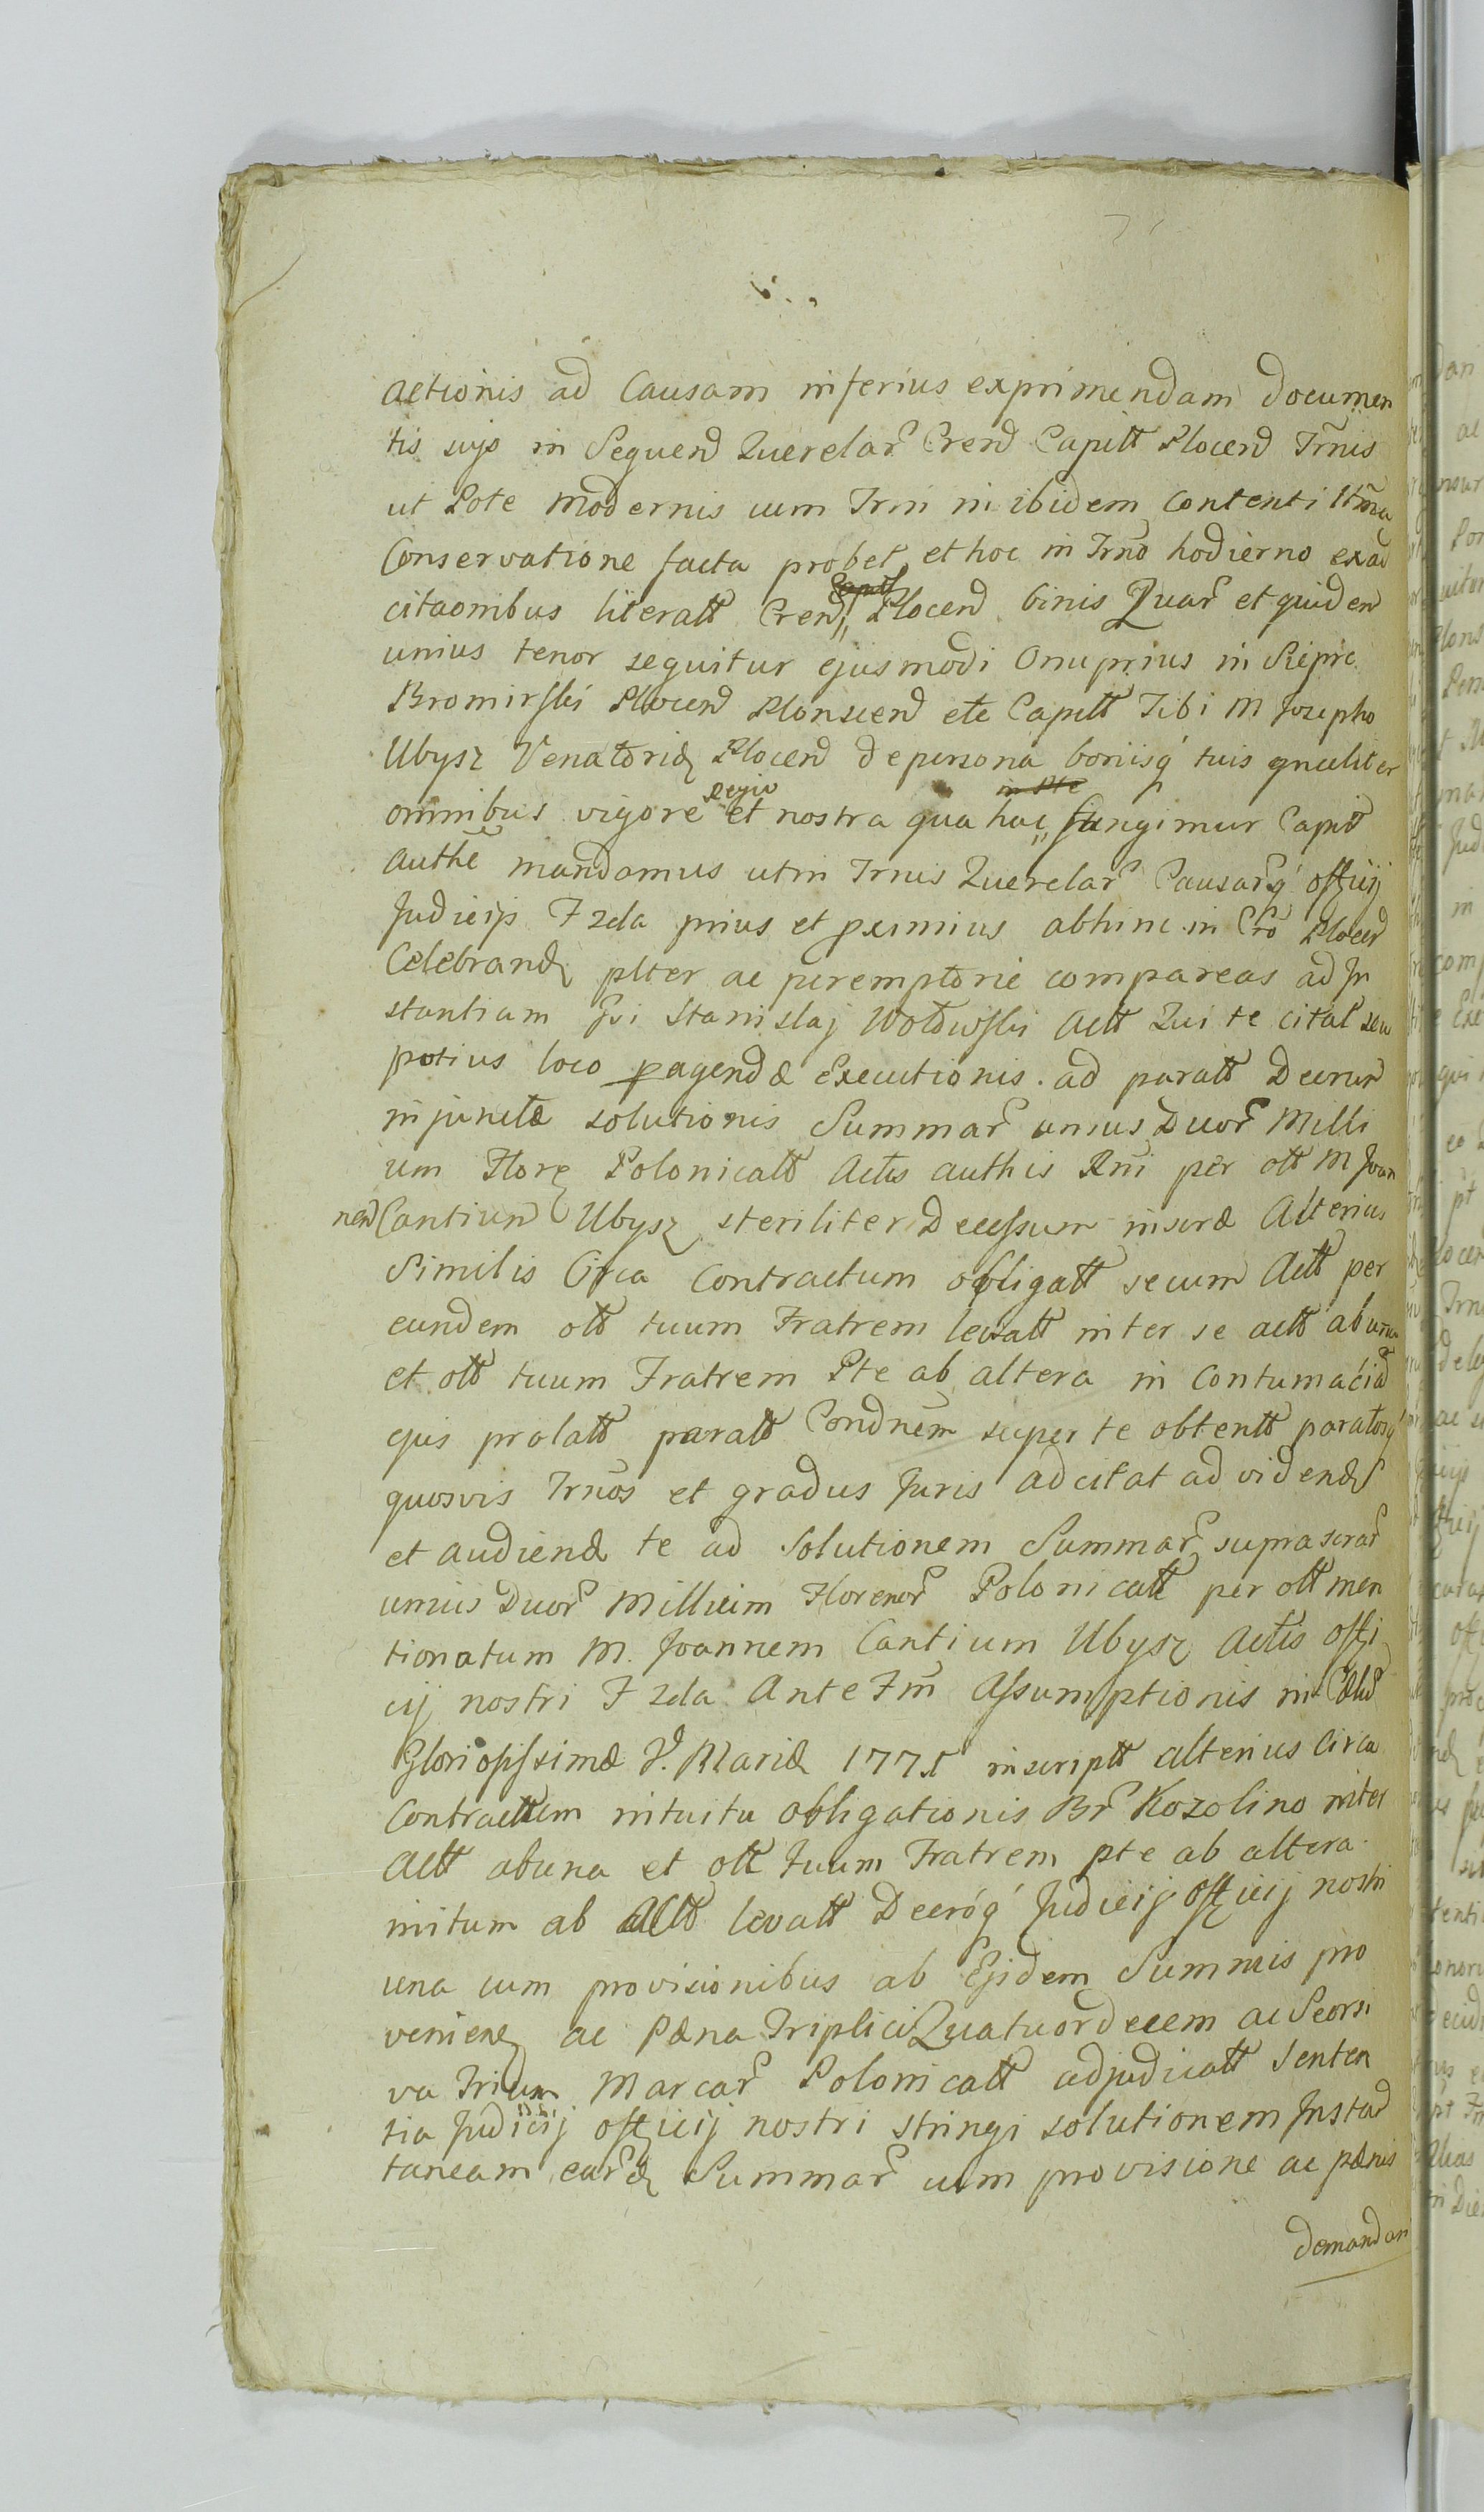 actionis ad Causam inferius exprimendam documen
tis suis in Sequend Querelar Crend Capitt Plocend Trnis
ut Pote modernis cum Trni in ibidem Contenti
Conservatione facta probet et hoc in Trno hodierno exad
citaonibus literatt Crend Plocend binis Quar et quidem
unius tenor sequitur ejusmodi Onuprius in Sieprc
Bromirski Plocend Plonscend etc Capitt Tibi M Josepho
Ubysz Venatorid Plocend de persona bonisq tuis gnceliter
omnibus vigore regia et nostra qua hac fungimur Capit
Authe mandamus ut in Trnis Querelar Causarq officij
Judicijs F 2da prius et pximius abhinc in Cro Plocend
Celebrand plter ac peremptorie compareas ad In
stantiam Gsi Stanislaj Wołowski Actt Qui te citat seu
potius loco pagendæ Executionis ad paratt Decrum
injunctæ solutionis Summar unius Duor Milli
um Flore Polonicatt Actis authis Rni per ott M Joan
nem Cantium Ubysz steriliter Decessum inscræ Alterius
Similis Circa Contractum obligatt secum Actt per
eundem ott tuum Fratrem levatt inter se actt ab una
et ott tuum Fratrem Pte ab altera in Contumaciam
ejus prolatt paratt Condnem super te obtentt paratosq
quosvis Trnos et gradus Juris adcitat ad videnд
et audiend te ad Solutionem Summar suprascrar
unius Duor Millium Florenor Polonicatt per ott men
tionatum M. Joannem Cantium Ubysz Actis offi
cij nostri F 2da Ante Fm Assumptionis in Cælum
Gloriosissimæ V. Mariæ 1775 inscriptt alterius Circa
Contractum intuitu obligationis Br Kozolino inter
Actt ab una et ott tuum Fratrem pte ab altera
initum ab Actt levatt Decróq Judicij officij nostri
una cum provisionibus ab Eisdem Summis pro
veniend ac Pæna Triplici Quatuordecem ac Seorsi
va Trium Marcar Polonicatt adjudicatt senten
tia Judicij officij nostri stringi solutionem Instan
taneam eard Summar cum provisione ac pænis
demandari